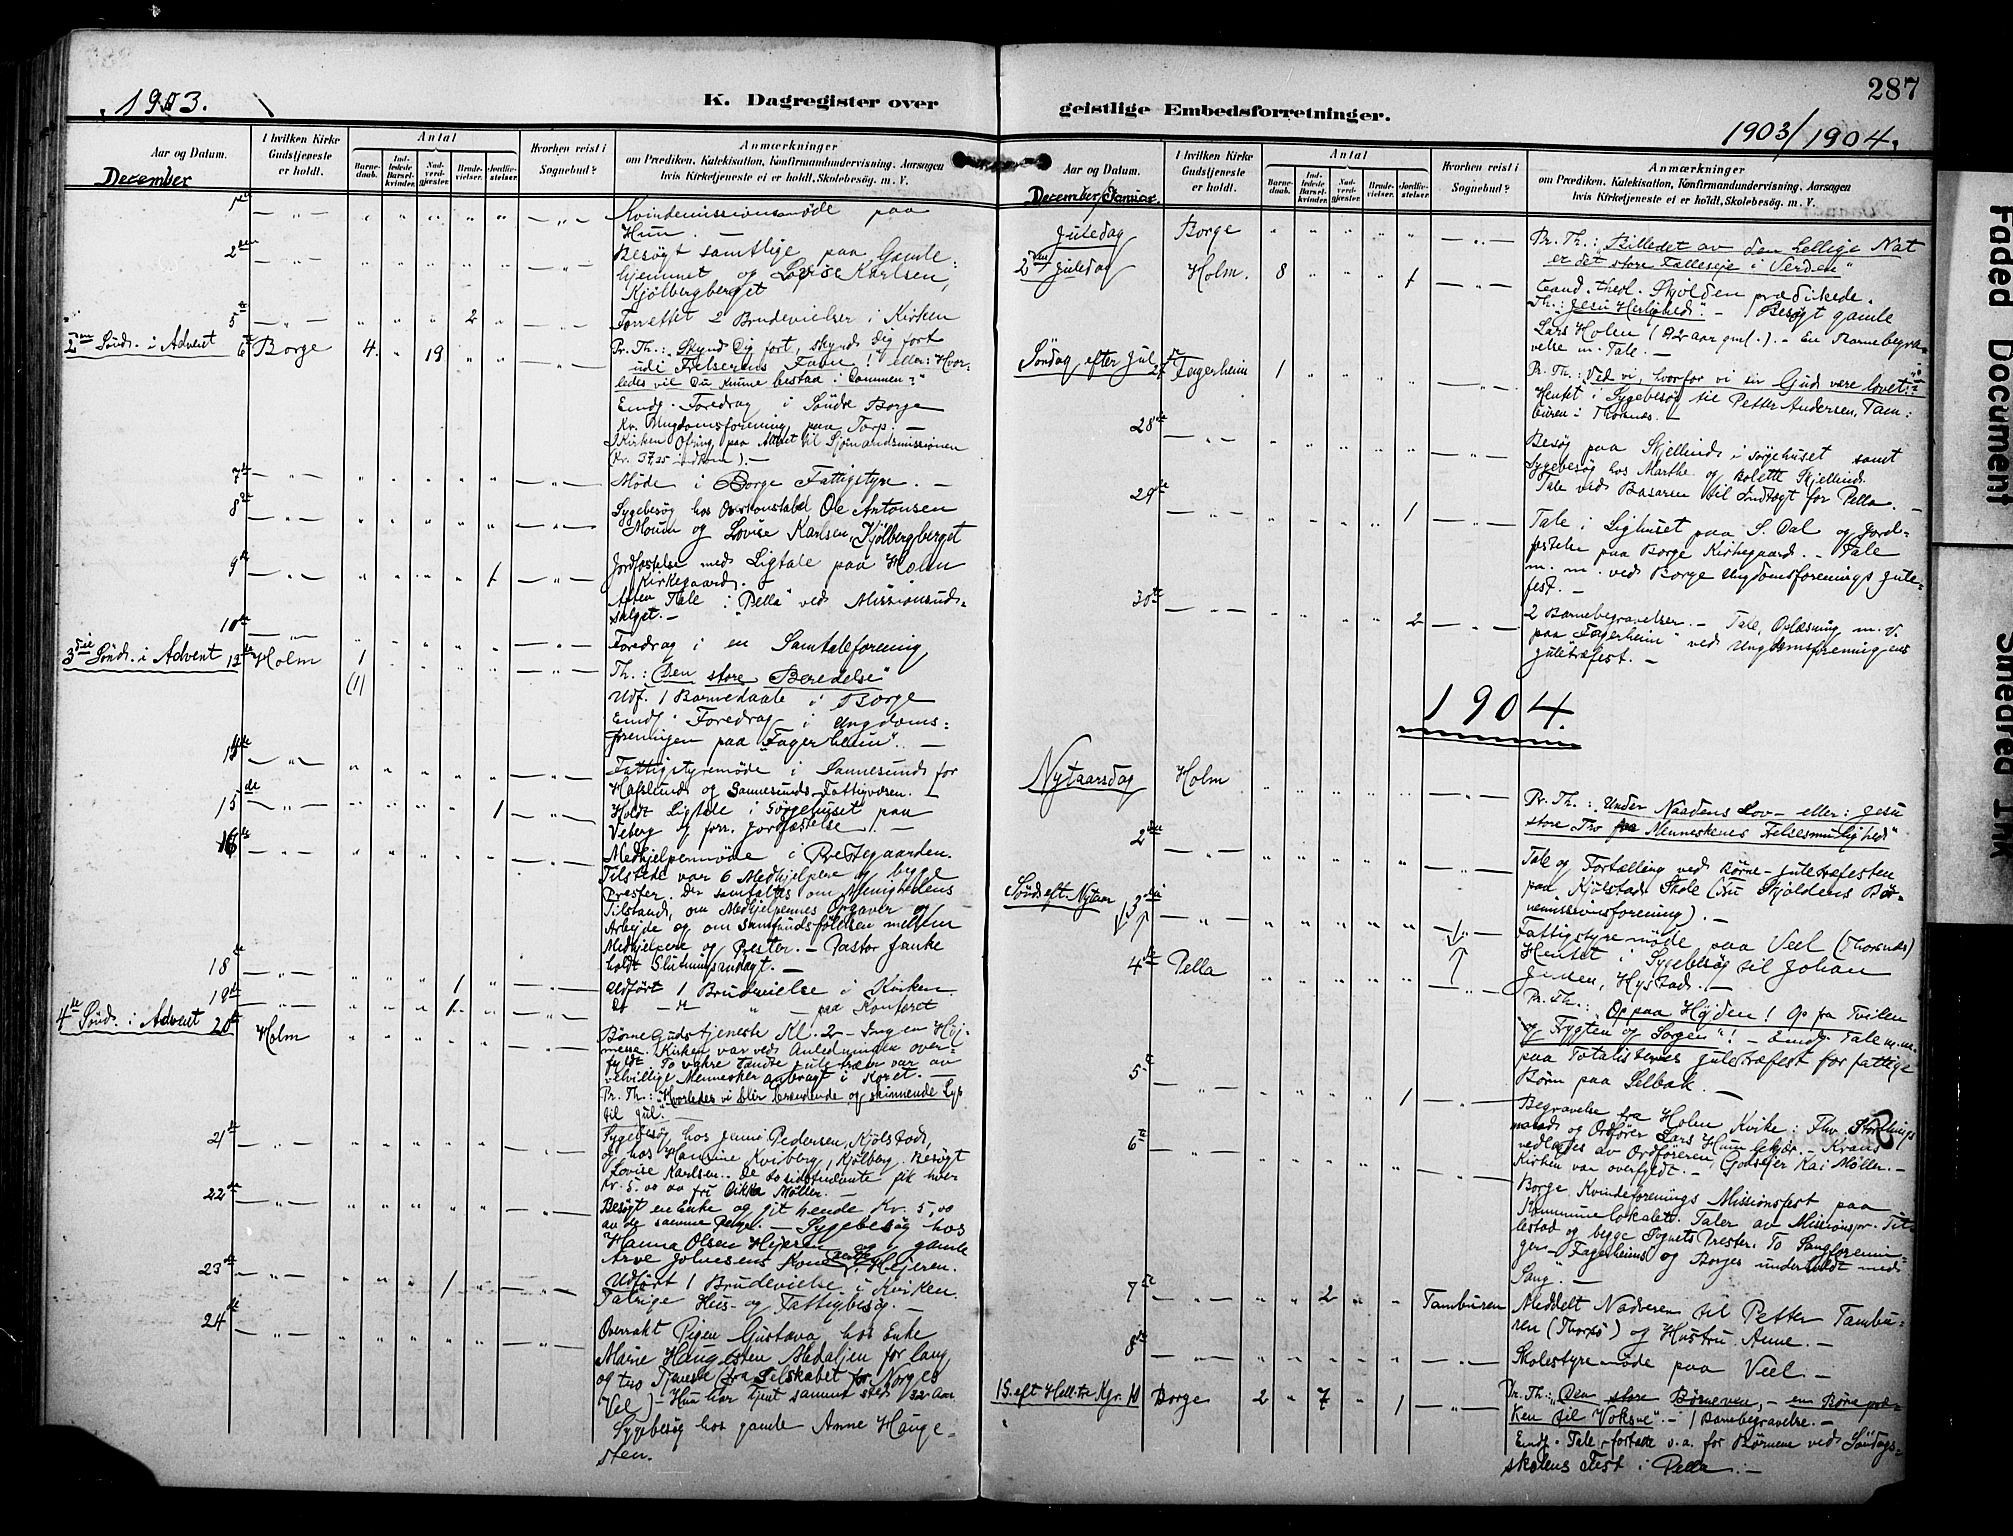 287
1903.
K. Dagregister over
geistlige Embedsforretninger.
1903/1904.
Aar og Datum.
I hvilken Kirke Gudstjeneste er holdt.
Antal
Barne-daab.
Ind-ledede Barsel-kvinder.
Nad-verd-gjester.
Brude-vielser.
Jordfæ-stelser.
Hvorhen reist i Sognebud?
Anmærkninger
om Prædiken, Katekisation, Konfirmandundervisning, Aarsagen
hvis Kirketjeneste ei er holdt, Skolebesøg. m. V.
December
Kvindemissionsmøde paa
Hun. —
2den
Besøgt samtlige paa Gamle-
hjemmet og Lovise Karlsen,
Kjølbergberget
5te 2 Forrettet 2 Brudevielser i Kirken
2den Sönd. i Advent 6te Borge 4 19 Pr. Th.: Skynd Dig fort, skynd dig fort
udi Frelserens Favn! eller: Hvor-
ledes vil Du kunne bestaa i Dommen?"
Emdg. Foredrag i Söndre Borge
Kv. Ungdomsforening paa Torp. —
I Kirken Ofring paa Alteret til Sjømandsmissionen
(Kr. 37,25 indkom). —
7de Møde i Borge Fattigstyre. —
8de Sygebesøg hos Overkonstabel Ole Antonsen
Moum og Lovise Karlsen, Kjølbergberget
9de 1 Jordfæstelse med Ligtale paa Holm
Kirkegaard. —
Aften Tale i "Pella" ved Missionsud-
salget. —
10de Foredrag i en Samtaleforening
3die Sönd. i Advent Holm 1 Th.: "Den store Beredelse"
(1) Udf. 1 Barnedaab i Borge
Emdg. Foredrag i Ungdoms-
foreningen paa "Fagerheim". —
Fattigstyremøde i Sannesund for
Hafslund og Sannesunds Fattigvæsen. —
15de 1 Holdt Ligtale i Sørgehuset paa
Veberg og forr. Jordfæstelse. —
16de Medhjelpermøde i Prestegaarden.
Tilstede var 6 Medhjelpere og begge
Prester. Der samtaltes om Menighedens
Tilstand, om Medhjelpernes Opgaver og
Arbejde og om Samfundsfølelsen mellem
Medhjelpere og Prester. — Pastor Janke
holdt Slutningsandagt. —
18de 1 Udført 1 Brudevielse i Kirken
19de 1 do — " — paa Kontoret
4de Sönd. i Advent 20de Holm Børne Gudstjeneste Kl. 2 — Ingen Høj-
messe. Kirken var ved Anledningen over-
fyldt. To vakre tændte Juletræer var av
velvillige Mennesker anbragt i Koret. —
Pr. Th.: "Hvorledes vi blir brændende og skinnende Lys
til Jul". —
21de Sygebesøg hos Jenni Pedersen, Kjølstad,
og hos Hansine Kviberg, Kjølberg. Besøgt
Lovise Karlsen. De to sidstnævnte fik hver
Kr. 5,00 av frk Dikka Möller. —
22de Besøgt en Enke og git hende Kr. 5,00
av de samme Penge. — Sygebesøg hos
Hanna Olsen Hjeren og gamle
Arve Johnsens Kone Hejeren.
23de 1 Udført 1 Brudevielse i Kirken.
Talrige Hus- og Fattigbesøg. —
24de Overrakt Pigen Gustava hos Enke
Marie Haugesten Medaljen for lang
og tro Tjeneste (fra Selskabet for Norges
Vel) — Hun har tjent samme sted 32 Aar
Sygebesøg hos gamle Anne Hauge-
sten.
Aar og Datum.
I hvilken Kirke Gudstjeneste er holdt.
Antal
Barne-daab.
Ind-ledede Barsel-kvinder.
Nad-verd-gjester.
Brude-vielser.
Jordfæ-stelser.
Hvorhen reist i Sognebud?
Anmærkninger
om Prædiken, Katekisation, Konfirmandundervisning, Aarsagen
hvis Kirketjeneste ei er holdt, Skolebesøg. m. V.
December/Januar.
Juledag Borge Pr. Th.: Billedet av den hellige Nat
er det store Fælleseje i Verden"
2den Juledag Holm. 8 1 Cand. theol. Skjolden prædikede.
Th.: "Jesu Herlighed". — Besøgt gamle
Lars Holen (92 aar gml.). — En Barnebegra-
velse m. Tale. —
Søndag efter Jul 27de Fagerheim 1 Pr. Th.: Ved vi, hvorfor vi sir Gud være lovet?"
Hentet i Sygebesøg til Petter Andersen, Tam-
buren i Thorsnes. —
28de Besøg paa Skjellind i Sørgehuset samt
Sygebesøg hos Marthe og Bolette Skjellind.
Tale ved Basaren til Indtægt for Pella. —
29de 1 Tale i Lighuset paa S. Dal og Jord-
festelse paa Borge Kirkegaard. — Tale
m. m. ved Borge Ungdomsforenings Jule-
fest. —
30te 2 2 Barnebegravelser. — Tale, Oplæsning m. V.
paa "Fagerheim" ved Ungdomsforeningens
Juletræfest. —
1904.
Nytaarsdag Holm Pr. Th.: Under Naadens Lov — eller: Jesu
store Tro paa Menneskenes Frelsesmulighed"
2den Tale og Fortælling ved Børne-Juletræfesten
paa Kjølstad Skole (Fru Skjoldens Bør-
nemissionsforening). —
Sönd. eft. Nytaar 3die
Fattigstyremøde paa Veel (Thorsnes)
Hentet i Sygebesøg til Johan
Jensen, Hystad. —
4de Pella Pr. Th.: Op paa Høiden! Op fra Tvilen
og Frygten og Sorgen"! — Emdg. Tale m.m.
paa Totalisternes Juletræfest for fattige
Børn paa Selbak. —
5te 1 Begravelse fra Holm Kirke: Fhv. Stortings-
mand og Ordfører Lars Hun begr. — Krans
vedlagdes av Ordføreren, Godsejer Kai Möller. —
Kirken var overfyldt. —
6te Borge Kvindeforenings Missionsfest paa
Kommunelokalet. Taler av Missionspr. Tit-
lestad og begge Sognets Prester. To Sangforenin-
ger — Fagerheims og Borges underholdt med
Sang". —
7de 2 Tamburen Meddelt Nadveren til Petter Tambu-
ren (Thorsø) og Hustru Anne. —
8de Skolestyremøde paa Veel. —
1 S. eft Hell. tre Kgr. 10 Borge 2 7 1 Pr. Th.: "Den store Børneven, — en Børnepræ-
ken til Voksne". — 1 Barnebegravelse. —
Emdg. Tale, fortalte v. a. for Børnene ved Söndags-
skolens Fest i Pella. —
Faded Document
Smeared Ink